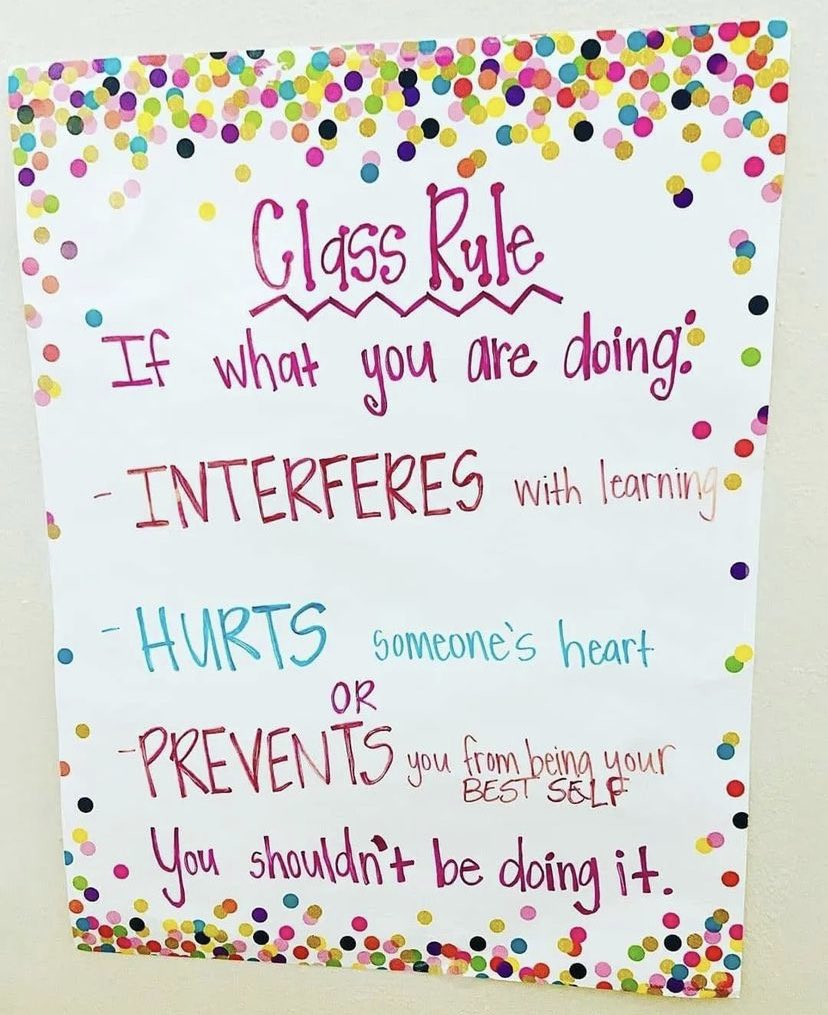 Class Rule
If what you are doing:
- INTERFERES with learning
- HURTS someone's heart
OR
- PREVENTS you from being your
BEST SELF
You shouldn't be doing it.